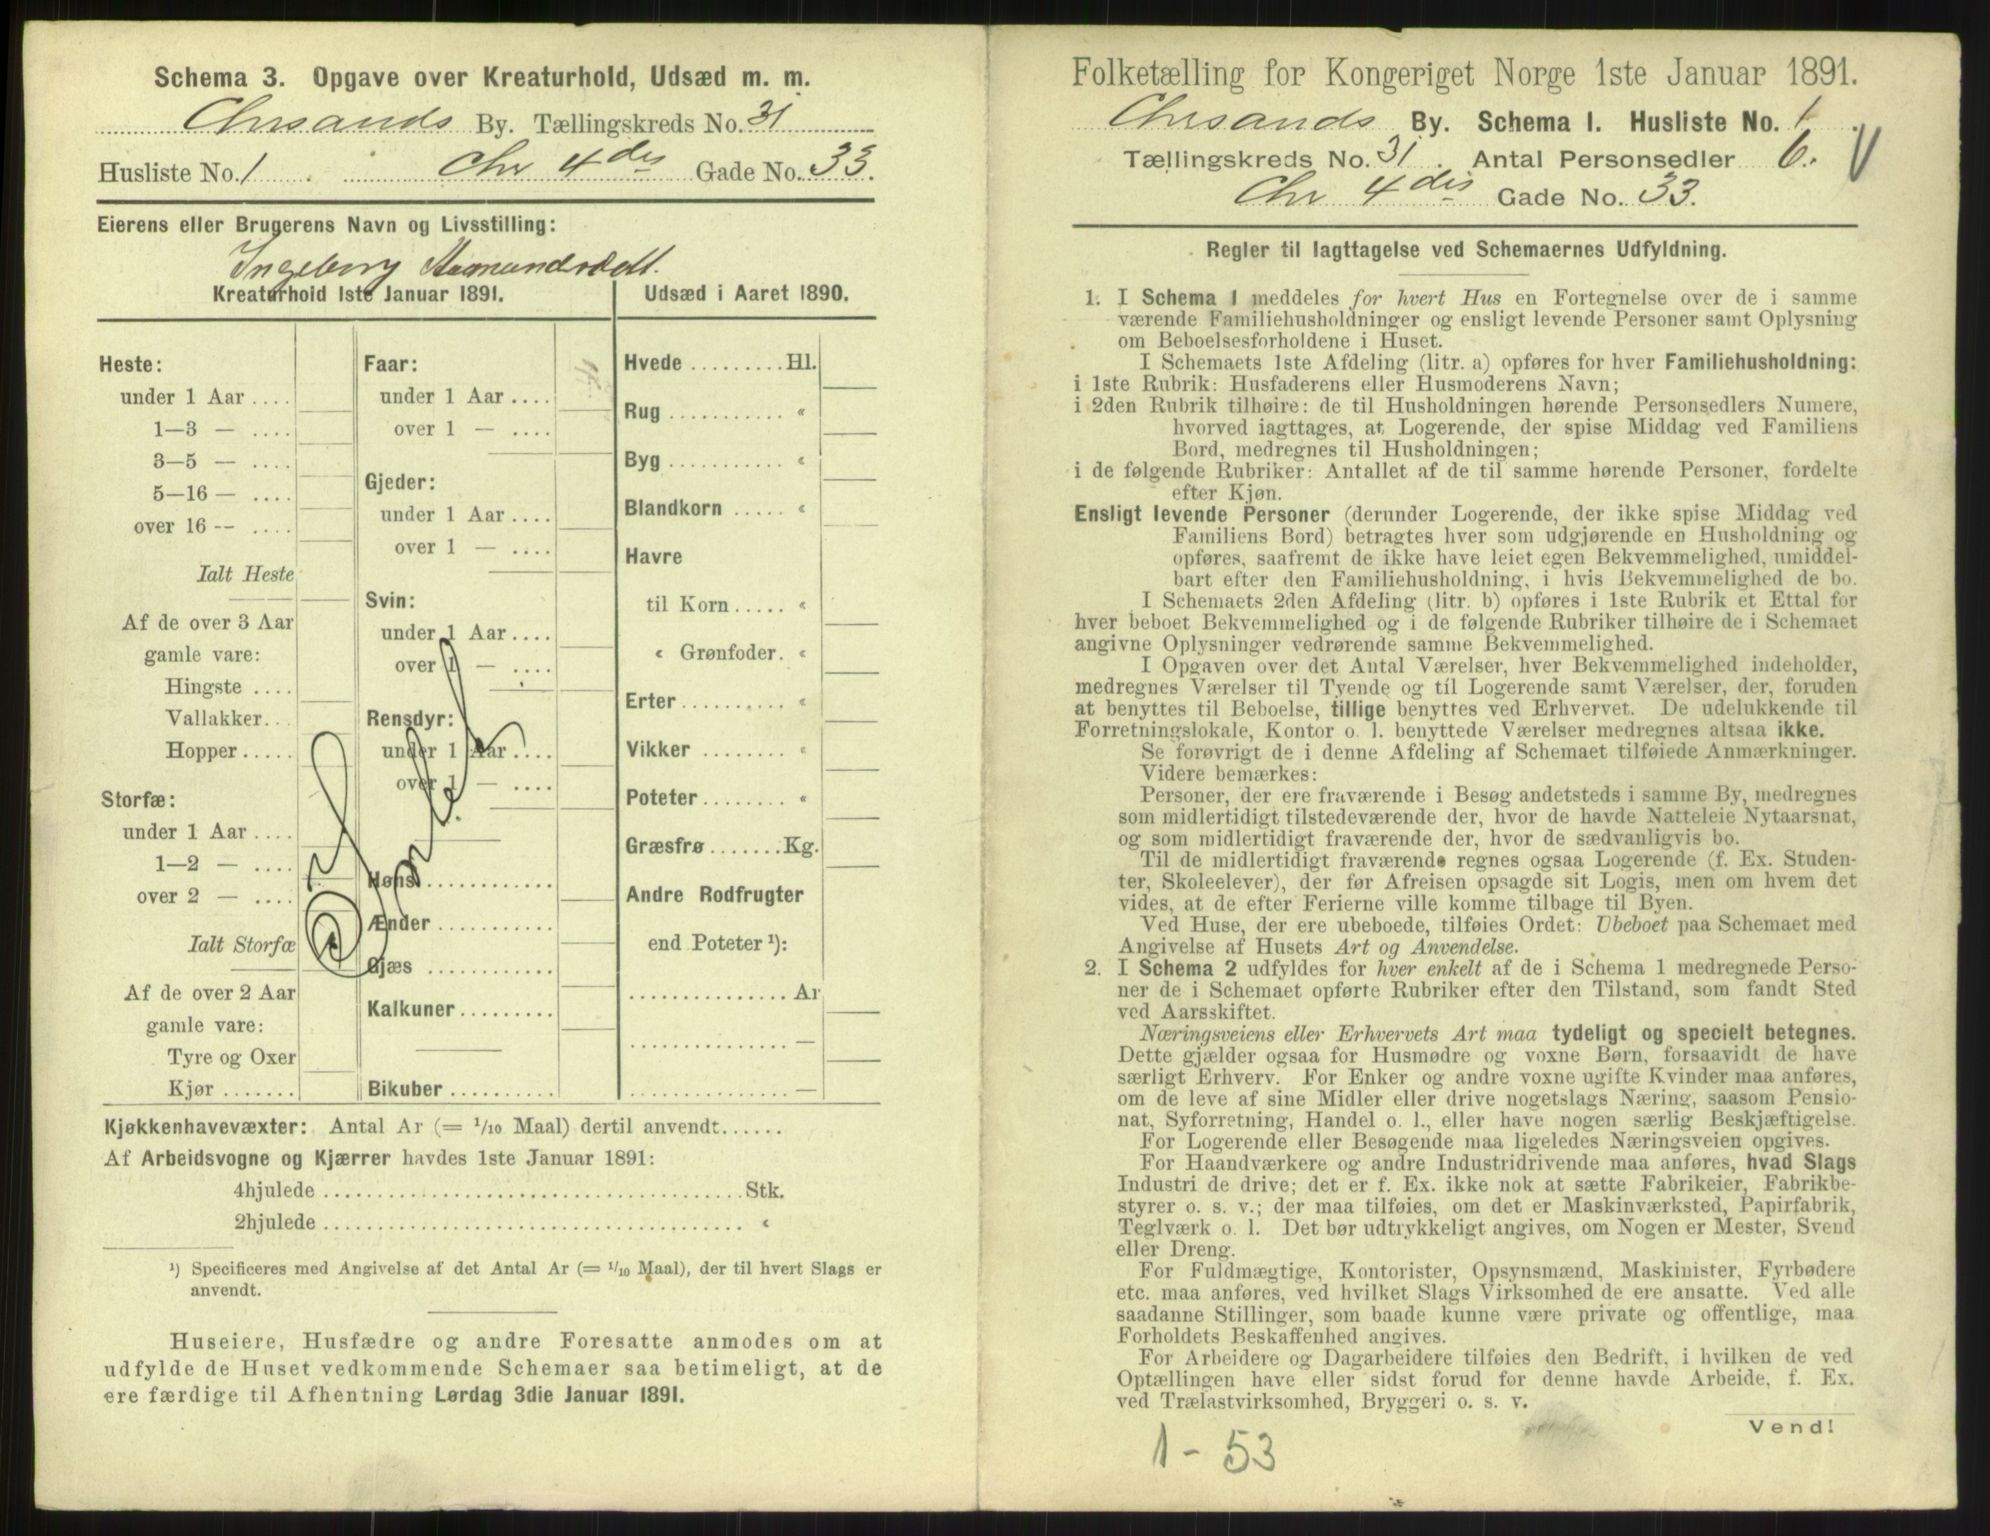 Schema 3. Opgave over Kreaturhold, Udsæd m. m.
Chrsands By. Tællingskreds No. 31
Husliste No. 1 . Chr 4des Gade No. 33.
Eierens eller Brugerens Navn og Livsstilling:
Ingeborg
Kreaturhold 1ste Januar 1891.
Heste:
under 1 Aar ....
1—3 — ....
3—5 — ....
5—16 — ....
over 16 -- ....
Ialt Heste
Af de over 3 Aar
gamle vare:
Hingste ....
Vallakker...
Hopper .....
Storfæ:
under 1 Aar ....
1—2 — ....
over 2 — ....
Ialt Storfæ
Af de over 2 Aar
gamle vare:
Tyre og Oxer
Kjør .......
Faar:
under 1 Aar ....
over 1 — ....
Gjeder:
under 1 Aar ....
over 1 — ....
Svin:
under 1 Aar ....
over 1 — ....
Rensdyr:
under 1 Aar ....
over 1 — ....
Høns ............
Ænder ...........
Gjæs ............
Kalkuner .........
Bikuber ..........
Udsæd i Aaret 1890.
Hvede ......... Hl.
Rug ........... «
Byg ........... «
Blandkorn ..... «
Havre
til Korn ..... «
« Grønfoder. «
Erter .......... «
Vikker ......... «
Poteter ........ «
Græsfrø ....... Kg.
Andre Rodfrugter
end Poteter ¹):
............... Ar
............... —
............... —
Kjøkkenhavevæxter: Antal Ar (= 1/10 Maal) dertil anvendt......
Af Arbeidsvogne og Kjærrer havdes 1ste Januar 1891:
4hjulede ...................................... Stk.
2hjulede ...................................... «
¹) Specificeres med Angivelse af det Antal Ar (= 1/10 Maal), der til hvert Slags er
anvendt.
Huseiere, Husfædre og andre Foresatte anmodes om at
udfylde de Huset vedkommende Schemaer saa betimeligt, at de
ere færdige til Afhentning Lørdag 3die Januar 1891.
Folketælling for Kongeriget Norge 1ste Januar 1891.
Chrsands By. Schema 1. Husliste No. 1 .
Tællingskreds No. 31 . Antal Personsedler 6.
Chr 4des Gade No. 33.
Regler til Iagttagelse ved Schemaernes Udfyldning.
1. I Schema 1 meddeles for hvert Hus en Fortegnelse over de i samme
værende Familiehusholdninger og ensligt levende Personer samt Oplysning
om Beboelsesforholdene i Huset.
I Schemaets 1ste Afdeling (litr. a) opføres for hver Familiehusholdning:
i 1ste Rubrik: Husfaderens eller Husmoderens Navn;
i 2den Rubrik tilhøire: de til Husholdningen hørende Personsedlers Numere,
hvorved iagttages, at Logerende, der spise Middag ved Familiens
Bord, medregnes til Husholdningen;
i de følgende Rubriker: Antallet af de til samme hørende Personer, fordelte
efter Kjøn.
Ensligt levende Personer (derunder Logerende, der ikke spise Middag ved
Familiens Bord) betragtes hver som udgjørende en Husholdning og
opføres, saafremt de ikke have leiet egen Bekvemmelighed, umiddel-
bart efter den Familiehusholdning, i hvis Bekvemmelighed de bo.
I Schemaets 2den Afdeling (litr. b) opføres i 1ste Rubrik et Ettal for
hver beboet Bekvemmelighed og i de følgende Rubriker tilhøire de i Schemaet
angivne Oplysninger vedrørende samme Bekvemmelighed.
I Opgaven over det Antal Værelser, hver Bekvemmelighed indeholder,
medregnes Værelser til Tyende og til Logerende samt Værelser, der, foruden
at benyttes til Beboelse, tillige benyttes ved Erhvervet. De udelukkende til
Forretningslokale, Kontor o. l. benyttede Værelser medregnes altsaa ikke.
Se forøvrigt de i denne Afdeling af Schemaet tilføiede Anmærkninger.
Videre bemærkes:
Personer, der ere fraværende i Besøg andetsteds i samme By, medregnes
som midlertidigt tilstedeværende der, hvor de havde Natteleie Nytaarsnat,
og som midlertidigt fraværende der, hvor de sædvanligvis bo.
Til de midlertidigt fraværende regnes ogsaa Logerende (f. Ex. Studen-
ter, Skoleelever), der før Afreisen opsagde sit Logis, men om hvem det
vides, at de efter Ferierne ville komme tilbage til Byen.
Ved Huse, der ere ubeboede, tilføies Ordet: Ubeboet paa Schemaet med
Angivelse af Husets Art og Anvendelse.
2. I Schema 2 udfyldes for hver enkelt af de i Schema 1 medregnede Perso-
ner de i Schemaet opførte Rubriker efter den Tilstand, som fandt Sted
ved Aarsskiftet.
Næringsveiens eller Erhvervets Art maa tydeligt og specielt betegnes.
Dette gjælder ogsaa for Husmødre og voxne Børn, forsaavidt de have
særligt Erhverv. For Enker og andre voxne ugifte Kvinder maa anføres,
om de leve af sine Midler eller drive nogetslags Næring, saasom Pensio-
nat, Syforretning, Handel o. l., eller have nogen særlig Beskjæftigelse.
For Logerende eller Besøgende maa ligeledes Næringsveien opgives.
For Haandværkere og andre Industridrivende maa anføres, hvad Slags
Industri de drive; det er f. Ex. ikke nok at sætte Fabrikeier, Fabrikbe-
styrer o. s. v.; der maa tilføies, om det er Maskinværksted, Papirfabrik,
Teglværk o. l. Det bør udtrykkeligt angives, om Nogen er Mester, Svend
eller Dreng.
For Fuldmægtige, Kontorister, Opsynsmænd, Maskinister, Fyrbødere
etc. maa anføres, ved hvilket Slags Virksomhed de ere ansatte. Ved alle
saadanne Stillinger, som baade kunne være private og offentlige, maa
Forholdets Beskaffenhed angives.
For Arbeidere og Dagarbeidere tilføies den Bedrift, i hvilken de ved
Optællingen have eller sidst forud for denne havde Arbeide, f. Ex.
ved Trælastvirksomhed, Bryggeri o. s. v.
Vend!
1 - 53